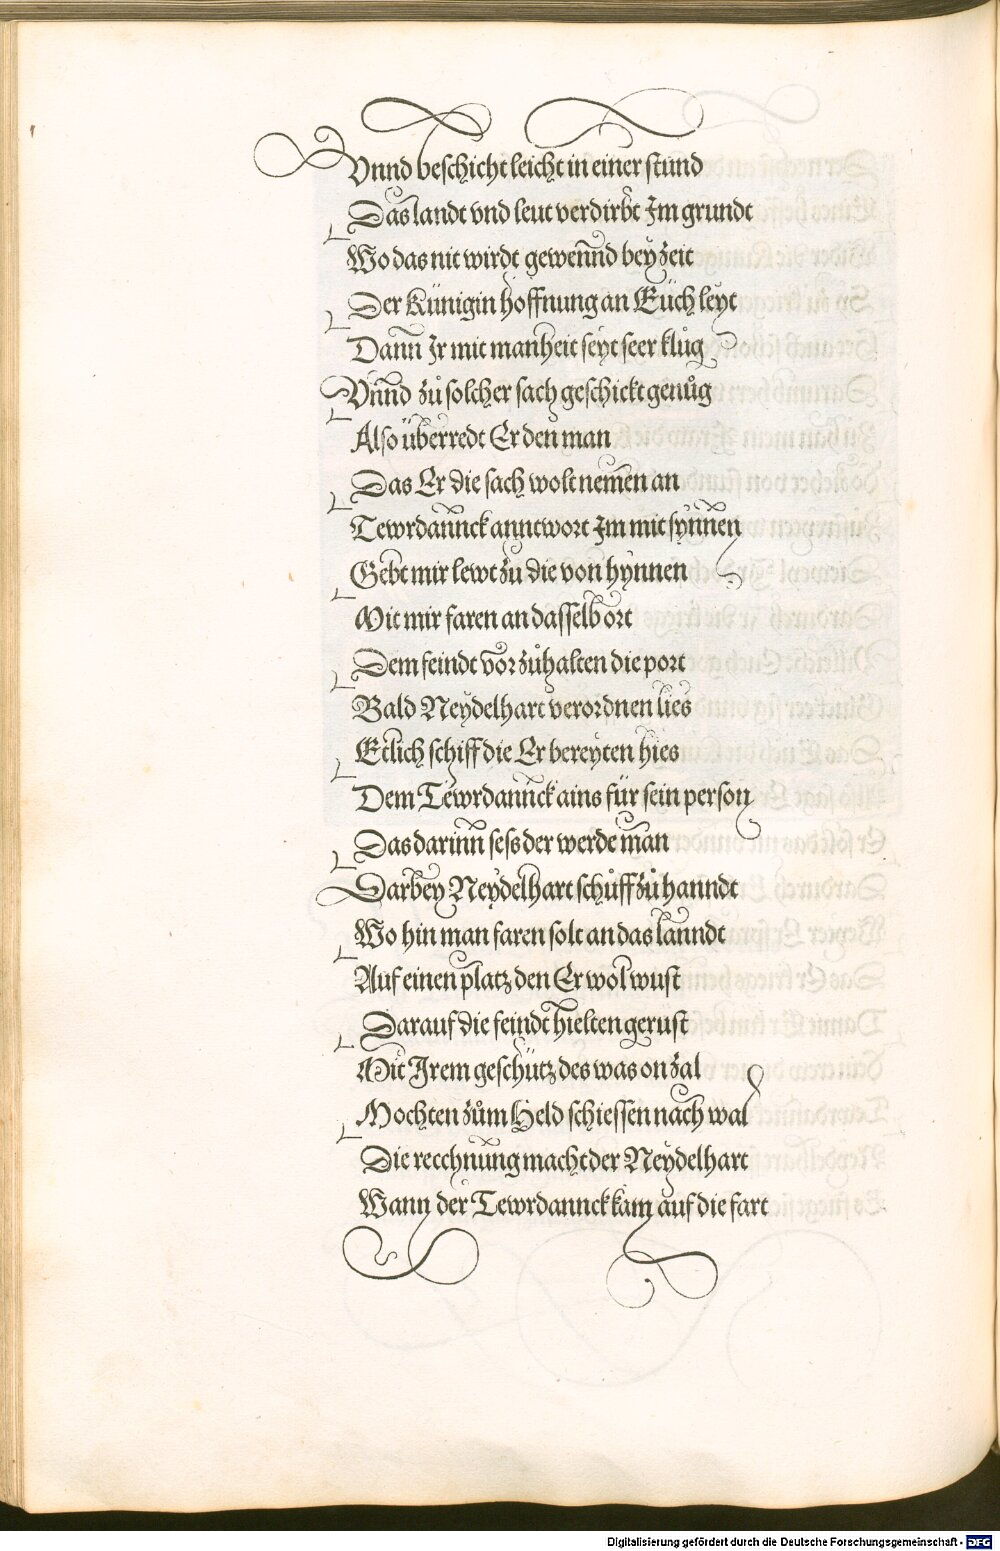 Vnnd beschicht leicht in einer stund
Das landt vnd leut verdirbt Im grundt
Wo das nit wirdt gewennd bey zeit
Der Künigin hoffnung an Eüch leyt
Dann Ir mit manheit seyt seer klůg
Vnnd zů solcher sach geschickt genůg
Also überredt Er den man
Das Er die sach wolt nemen an
Tewrdannck anntwort Im mit synnen
Gebt mir lewt zu die von hynnen
Mit mir faren an dasselb ort
Dem feindt vor zůhalten die port
Bald Neydelhart verordnen lies
Etlich schiff die Er bereyten hies
Dem Tewrdannck ains für sein person
Das darinn sess der werde man
Darbey Neydelhart schůff zů hanndt
Wo hin man faren solt an das lanndt
Auf einen platz den Er wol wust
Darauf die feindt hielten gerust
Mit Irem geschütz des was on zal
Mochten zům Held schiessen nach wal
Die recchnung macht der Neydelhart
Wann der Tewrdannck kam auf die fart
Digitalisierung gefördert durch die Deutsche Forschungsgemeinschaft - DFG